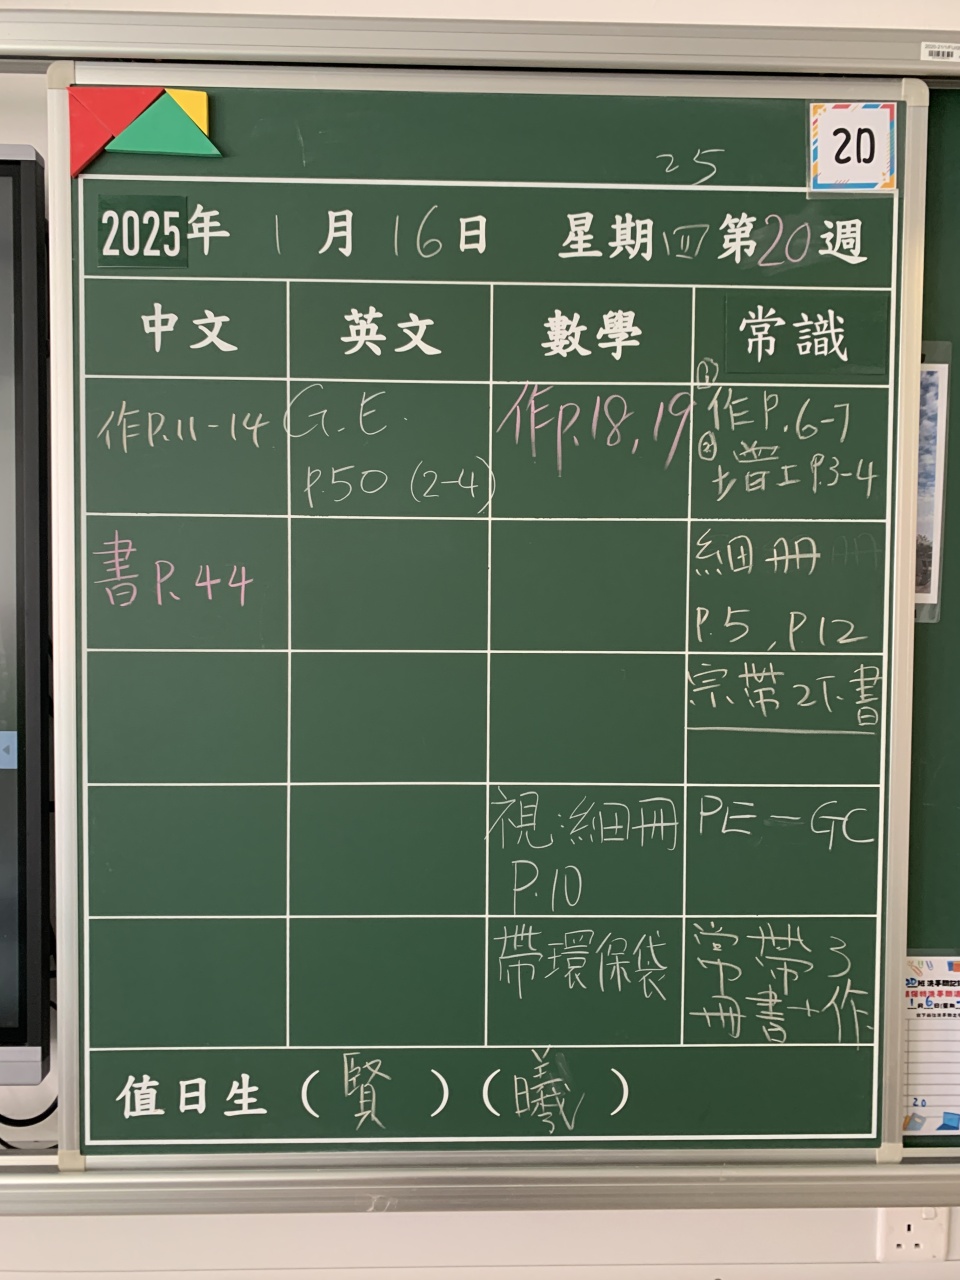 25
2D
2025年 1月16日 星期四 第20週
中文 英文 數學 常識
作P.11-14
G.E.
P.50 (2-4)
作P.18,19
① 作P.6-7
② 增工P.3-4
書P.44
細冊
P.5, P12
宗帶2下書
視:細冊
P.10
PE-GC
帶環保袋
常帶3
冊書+作
值日生(賢)(曦)
20